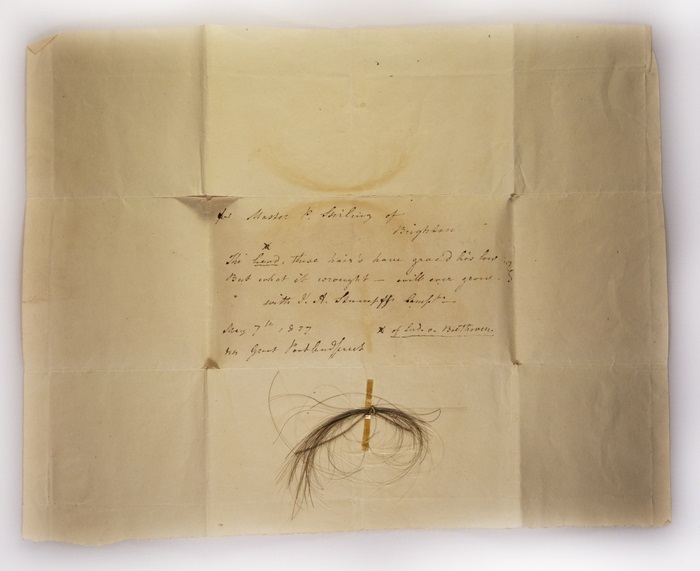 for Master P. Stirling of
Brighton
x
The head, these hair's have grac'd lies low
But what it wrought — will ever grow.
with J. A. Stumpff's Compts
May 7th, 1827 x of Lud. v. Beethoven.
Great Portland Street